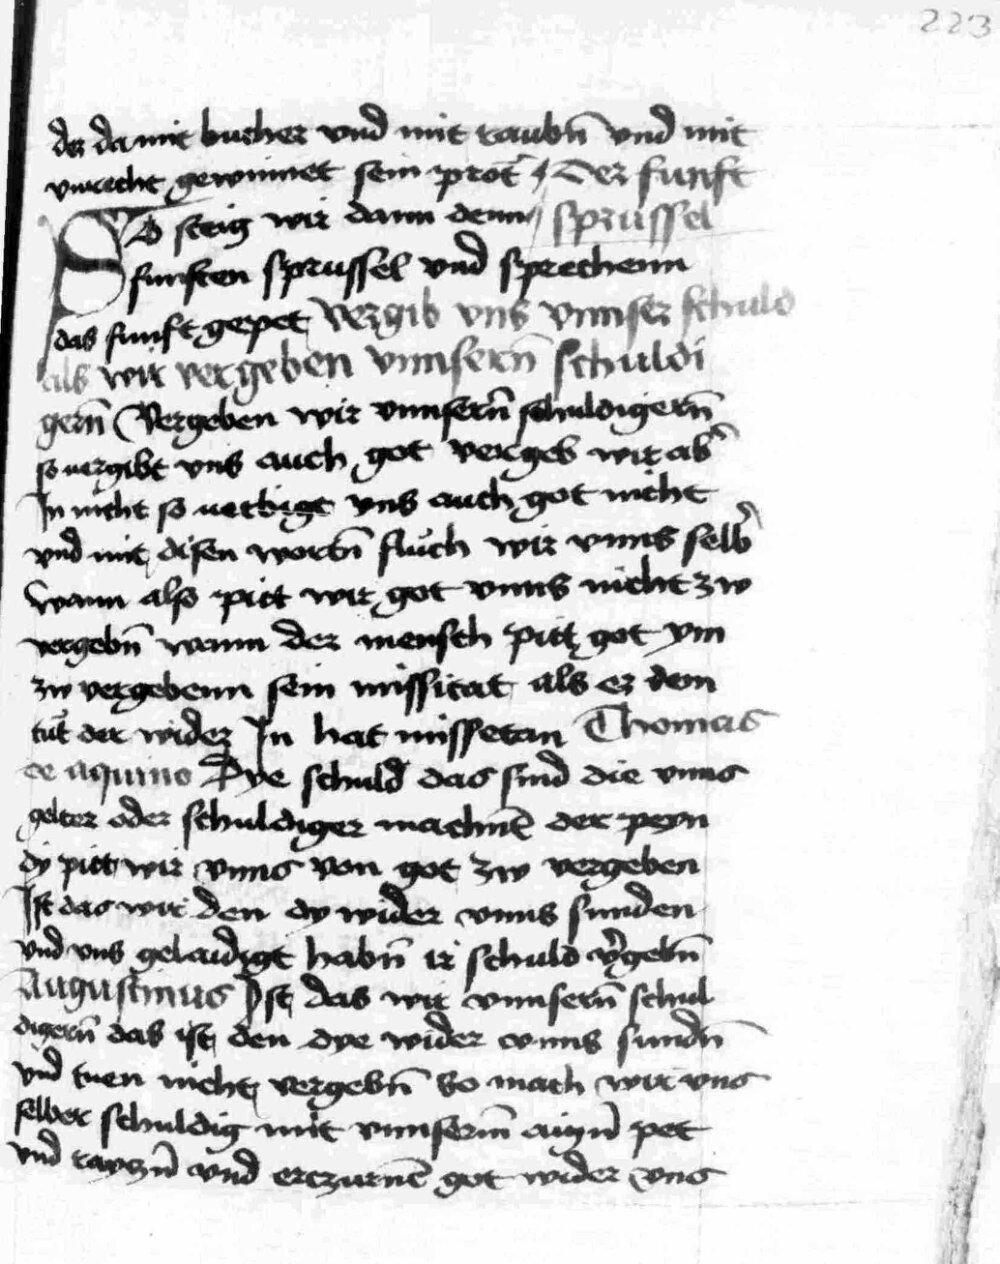 223
der da mit bucher vnd mit raubn̄ vnd mit
vnrecht gewinnet sein prot Der funft
So steig wir dann denn sprussel
funften sprussel vnd sprechenn
das funft gepet Vergib vns vnnser schuld
als wir vergeben vnnsern̄ schuldi
gern̄ Vergeben wir vnnsern̄ schuldigern̄
so vergibt vns auch got vergeb wir ab̄
In nicht so vergibt vns auch got nicht
vnd mit disen wortn̄ fluch wir vnns selb̄
wann also pitt wir got vnns nicht zw
vergebn̄ wann der mensch pitt got ym
zw vergebenn sein missitat als er dem
tut der wider In hat missetan Thomas
de aquino Dye schuld das sind die vnns
gelter oder schuldiger machn̄t der peyn
dy pitt wir vnns von got zw vergeben
Ist das wir den dy wider vnns sunden
vnd vns gelaidigt habn̄ ir schuld v̄gebn̄
Augustinus Ist das wir vnnsern̄ schul
digern̄ das ist den dye wider vnns sundn̄
vnd tuen nicht vergebn̄ So mach wir vns
selber schuldig mit vnnserm aign̄ pet
vnd rayzn̄ vnd erczurnē got wider vns